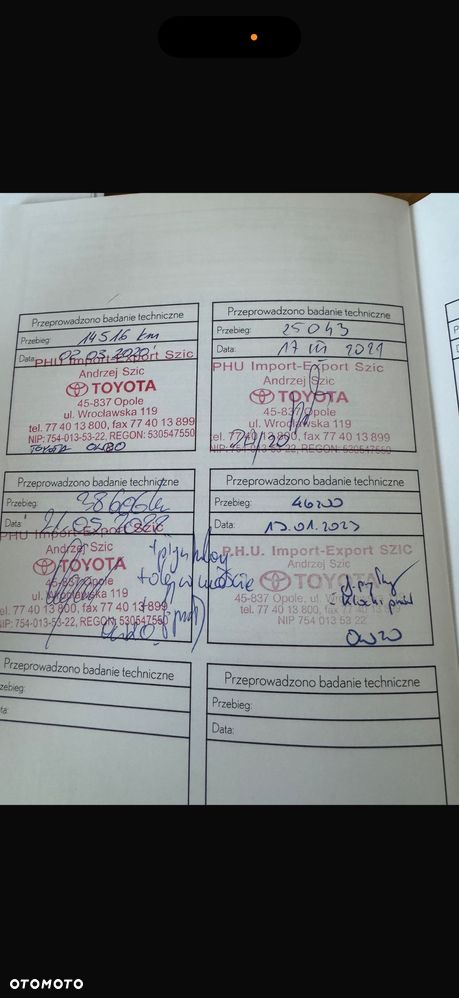 Przeprowadzono badanie techniczne
Przebieg: 14516 km
Data: 02.03.2020
PHU Import-Export Szic
Andrzej Szic
TOYOTA
45-837 Opole
ul. Wrocławska 119
tel. 77 40 13 800, fax 77 40 13 899
NIP: 754-013-53-22, REGON: 530547550
TOYOTA OW20
Przeprowadzono badanie techniczne
Przebieg: 25043
Data: 17 2021
PHU Import-Export Szic
Andrzej Szic
TOYOTA
45-837 Opole
ul. Wrocławska 119
tel. 77 40 13 800, fax 77 40 13 899
NIP: 754-013-53-22, REGON: 530547550
Przeprowadzono badanie techniczne
Przebieg:
Data: 05.2022
PHU Import-Export Szic
Andrzej Szic
TOYOTA
45-837 Opole
ul. Wrocławska 119
tel. 77 40 13 800, fax 77 40 13 899
NIP: 754-013-53-22, REGON: 530547550
Przeprowadzono badanie techniczne
Przebieg: 46200
Data: 13.01.2023
P.H.U. Import-Export SZIC
Andrzej Szic
TOYOTA
45-837 Opole, ul. Wrocławska
tel. 77 40 13 800, fax 77 40 13
NIP 754 013 53 22
klocki przód
OW20
Przeprowadzono badanie techniczne
zebieg:
ta:
Przeprowadzono badanie techniczne
Przebieg:
Data:
OTOMOTO